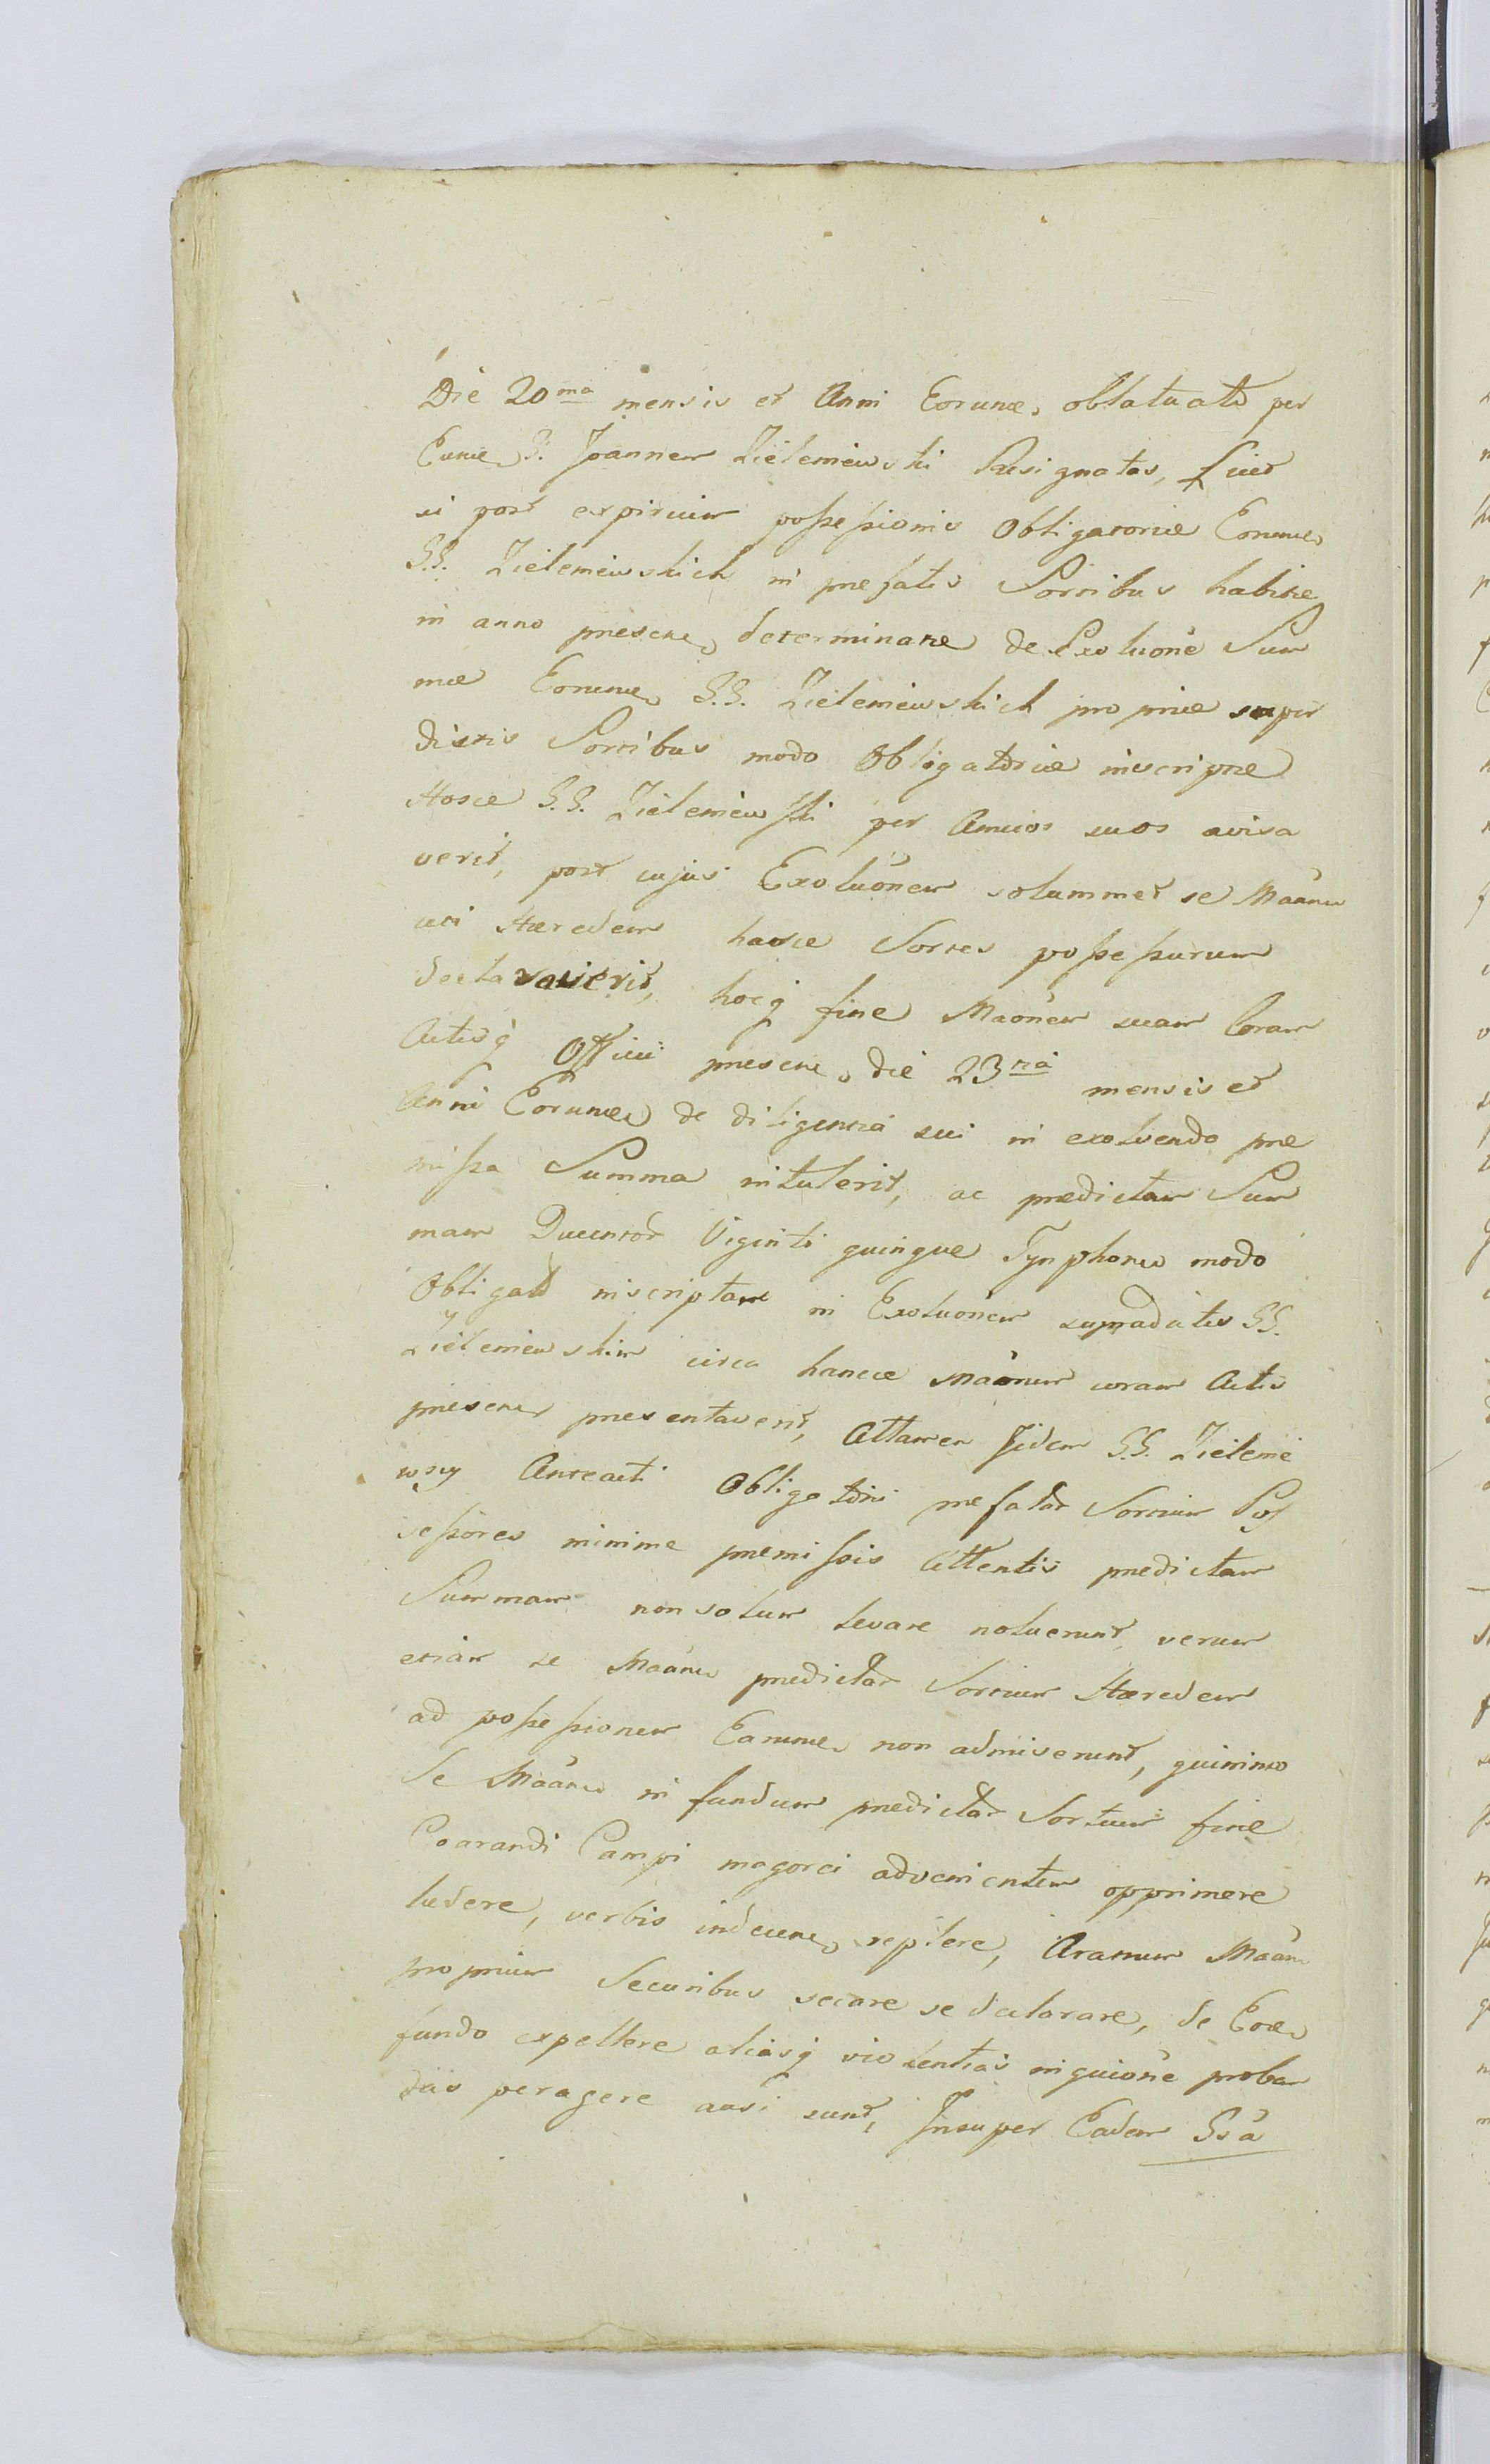 Die 20ma mensis et Anni Eorunde, oblatuat per
Eunde G. Joannem Zieleniewski Resignatos, Licet
si post expirium poſseſsionis Obligatoriæ Eorunde
G.G. Zieleniewskich in præfatis Sortibus habitæ
in anno præsenti determinatæ de Exoluōne Sum
mæ Eorunde G.G. Zieleniewskich propriæ super
dictis Sortibus modo Obligatorio inscriptæ
Hosce G.G. Zieleniewſki per Amicos suos avisa
verit, post cujus Exoluōnem solummet se Maānte
uti Hæredem hasce Sortes poſseſsurum
declaraverit, hocq fine Maōnem suam Coram
Actisq Officii præsen. die 23tia mensis et
Anni Eorunde de diligentia sui in exolvendo præ
miſsa Summa intulerit, ac prædictam Sum
mam Ducentor Viginti quinque Tynphorum modo
Obligat inscriptam in Exoluōnem supradictis GG.
Zieleniewskim circa hancce Maōnem coram Actis
præsen. præsentaverit, Attamen Iidem G.G. Zielenie
wscy Anteacti Obligatorii præfatar Sortium Poſ
seſsores minime præmiſsis Attentis prædictam
Summam non solum levare noluerunt, verum
etiam se Maānte prædictar Sortium Hæredem
ad poſseſsionem Earunde non admiserunt, quinimo
Se Maānte in fundum prædictar Sortium fine
Coarandi Campi magorci advenientem opprimere
lædere, verbis indecen. replere, Aratrum Maān
proprium Securibus secare se declarare, de Eode
fundo expellere aliasq violentias inquiōne proban
das peragere ausi sunt, Insuper Eadem Gsa